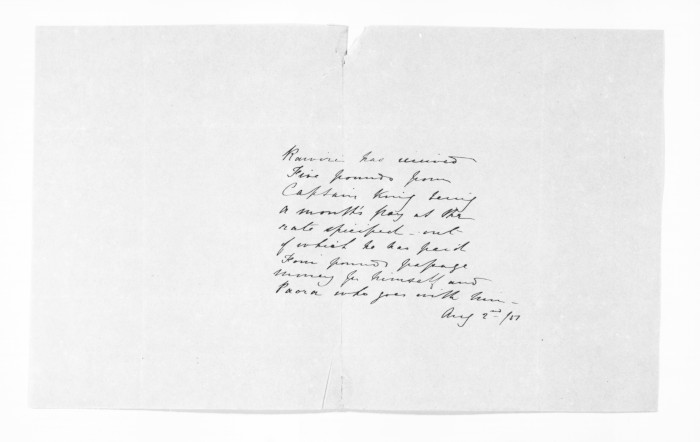 Rawiri has received
Five pounds from
Captain King being
a month's pay at the
rate specified - out
of which he has paid
Four pounds passage
money for himself and
Paora who goes with him -
Aug 2nd /51